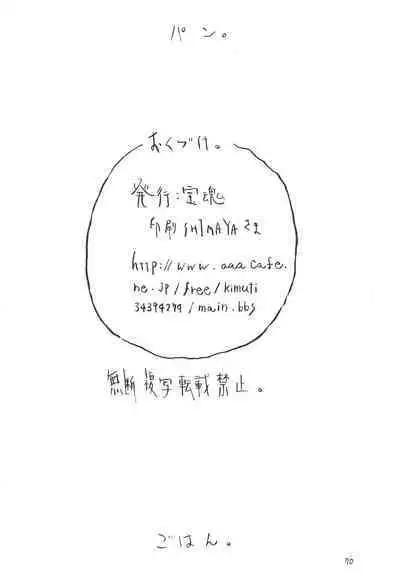 パン。
おくづけ。
発行:宝魂
印刷 SHIMAYA さま
http://www.aaacafe.
ne.jp/free/kimuti
34394294/main.bbs
無断複写転載禁止。
ごはん。
70